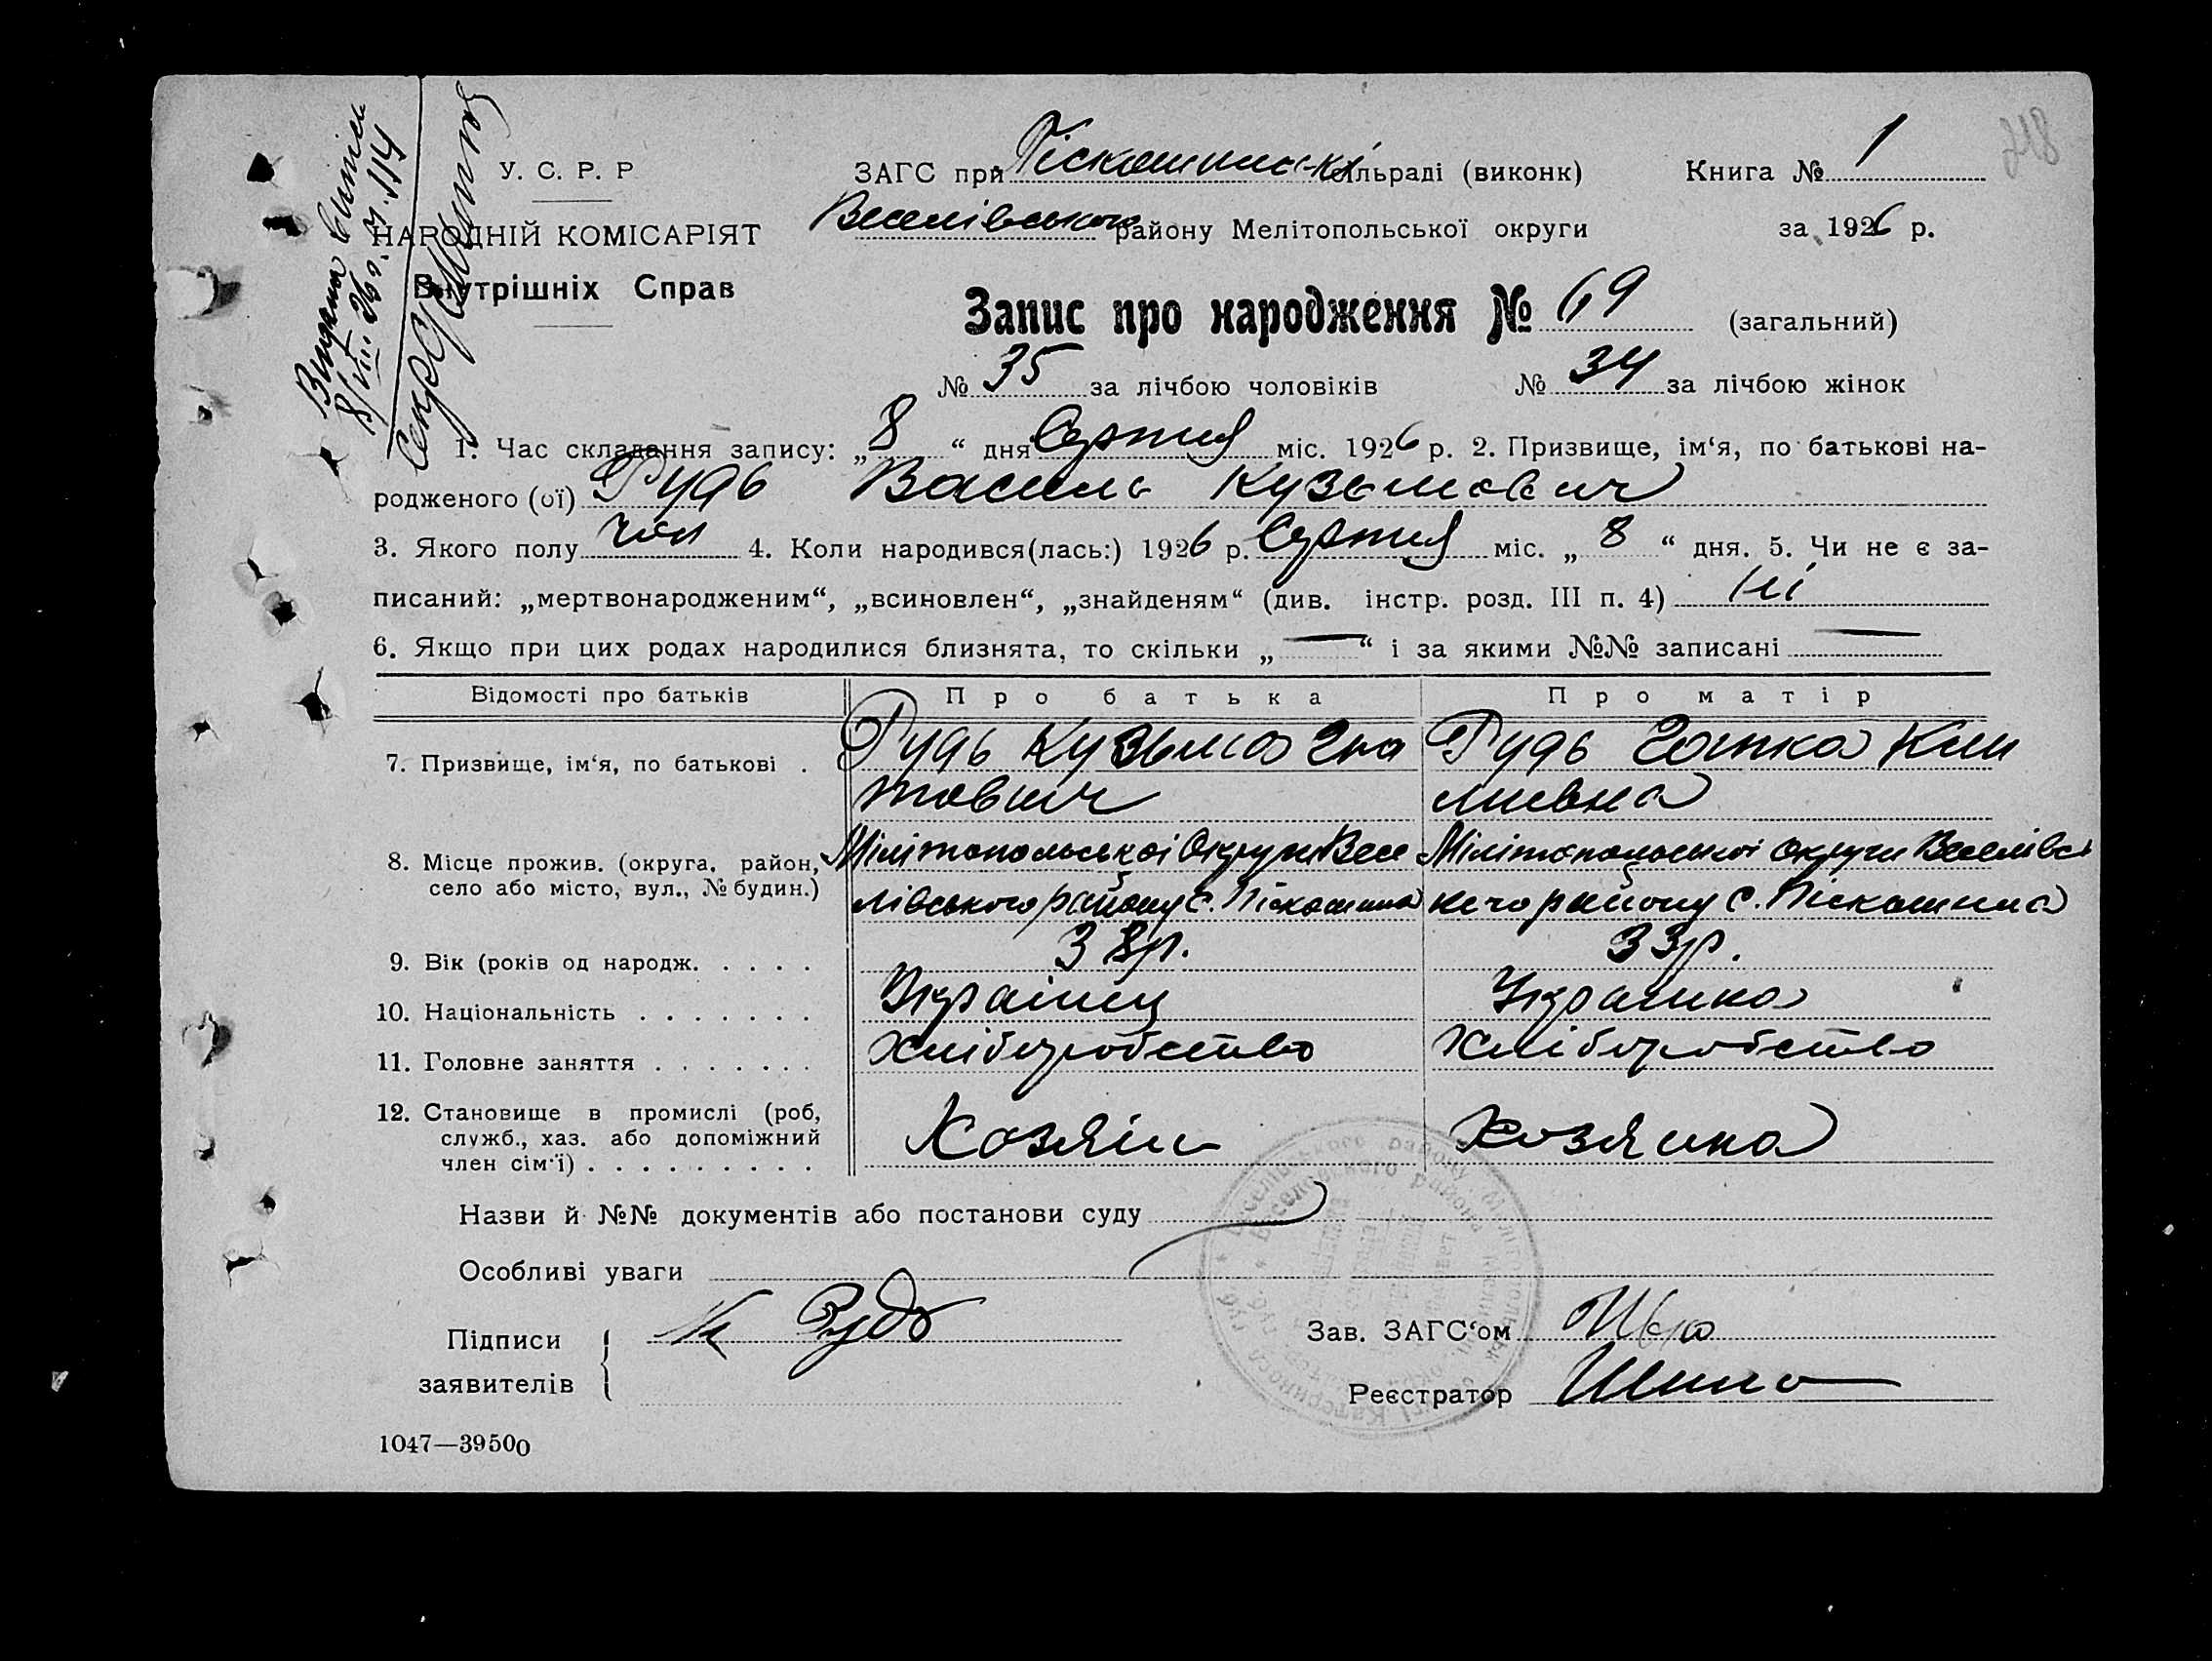 Видана виписъ
8/VIII 26 р. з. №114
Секр
У. С. Р. Р
НАРОДНІЙ КОМІСАРІЯТ
Внутрішніх Справ
ЗАГС при Піскошинській сільраді (виконк) Книга № 1
Веселівського району Мелітопольської округи за 1926 р.
Запис про народження № 69 (загальний)
№ 35 за лічбою чоловіків № 34 за лічбою жінок
1. Час складання запису: „8“ дня Серпня міс. 1926 р. 2. Призвище, ім‘я, по батькові на-
родженого (ої) Рудь Василь Кузьмович
3. Якого полу чол 4. Коли народився(лась:) 1926 р. Серпня міс. „8“ дня. 5. Чи не є за-
писаний: „мертвонародженим“, „всиновлен“, „знайденям“ (див. інстр. розд. III п. 4) Ні
6. Якщо при цих родах народилися близнята, то скільки „—“ і за якими №№ записані —
Відомості про батьків Про батька Про матір
7. Призвище, ім‘я, по батькові . Рудь Кузьма Гна Рудь Кли
тович мивна
8. Місце прожив. (округа, район, Мілітопольської Округи Весе Мілітопольської округи Веселівсь
село або місто, вул., № будин.) лівського району с. Піскошина кого району с. Піскошина
9. Вік (років од народж. . . . . 38р. 33р.
10. Національність . . . . . . . Українец Украинка
11. Головне заняття . . . . . . . Хліборобство Хліборобство
12. Становище в промислі (роб, Хозяін Хозяика
служб., хаз. або допоміжний
член сім‘ї) . . . . . . . . .
Назви й №№ документів або постанови суду
Особливі уваги
Підписи К Рудь Зав. ЗАГС‘ом
заявителів Реєстратор
1047—39500